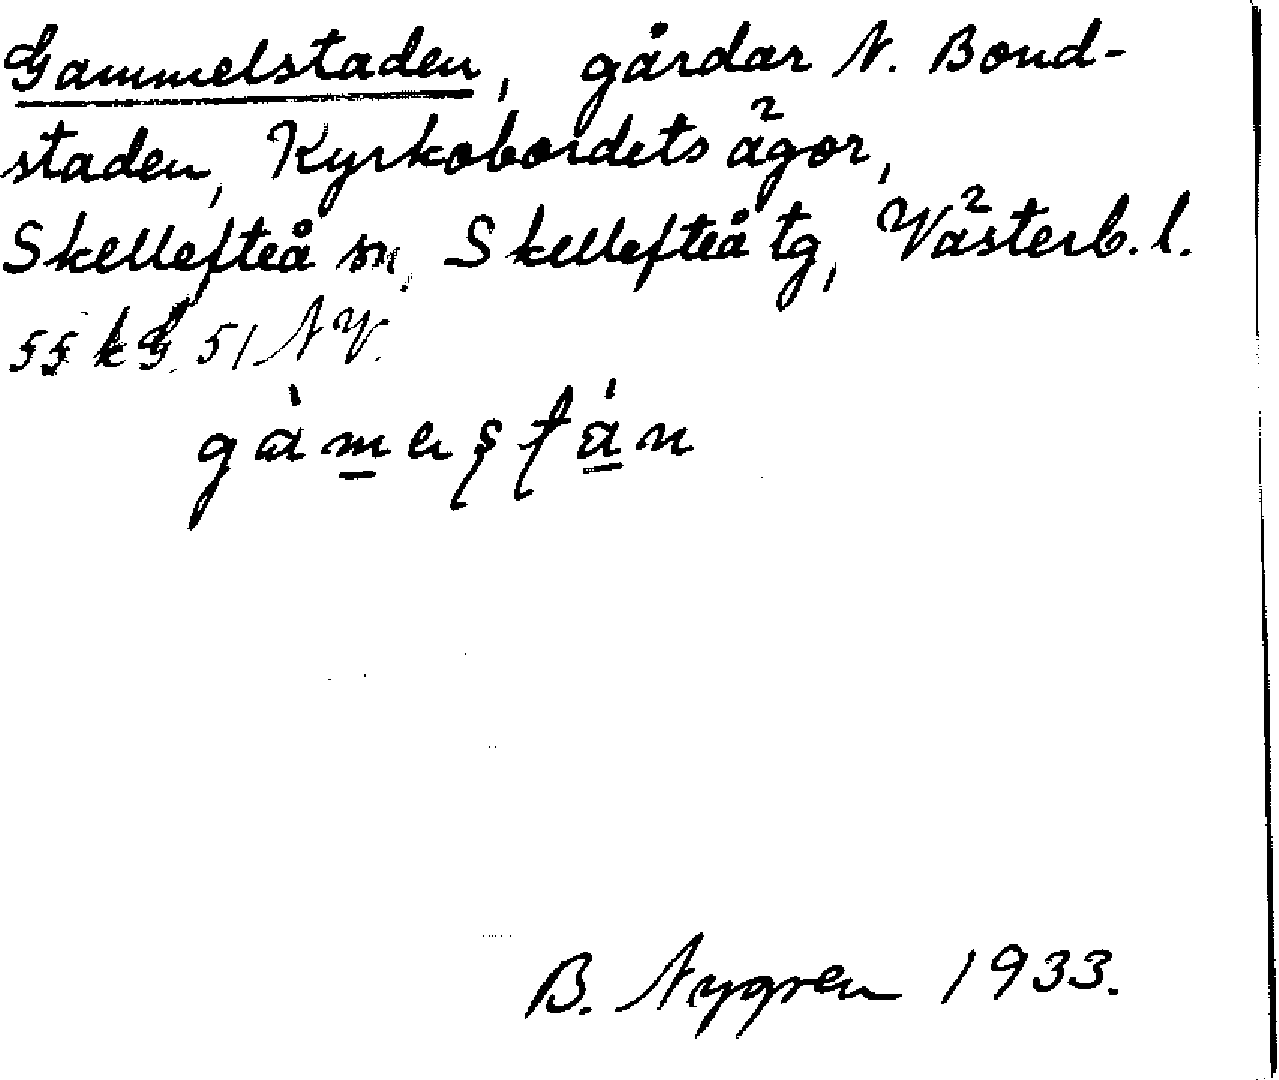 Gammelstaden, gårdar N. Bond-
staden, Kyrkobordets ägor,
Skellefteå sn, Skellefteå tg, Västerb. l.
55 kG 51 NV.
B. Nygren 1933.